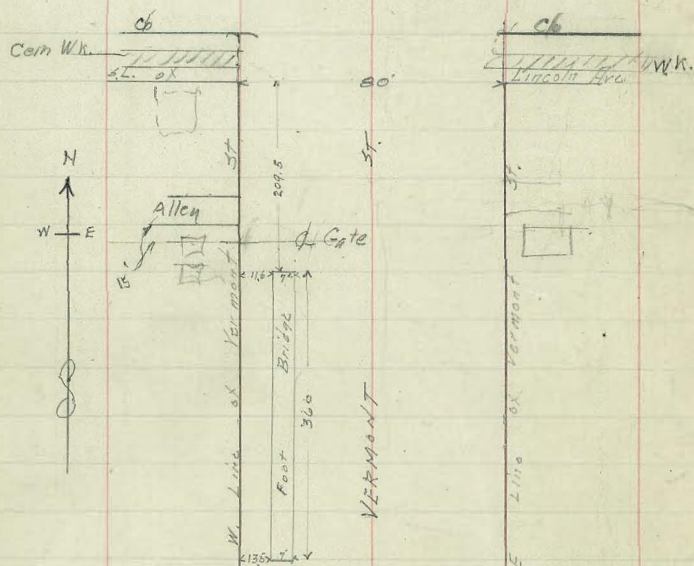 cb
cb
Cem Wk.
WK.
S.L. of
Lincoln Ave
80'
N
W E
St.
209.5
St.
St.
Allen
15'
℄ Gate
11.6 7'
W. Line of Vermont
Foot Bridge
360
VERMONT
E Line of Vermont
13.5 7'